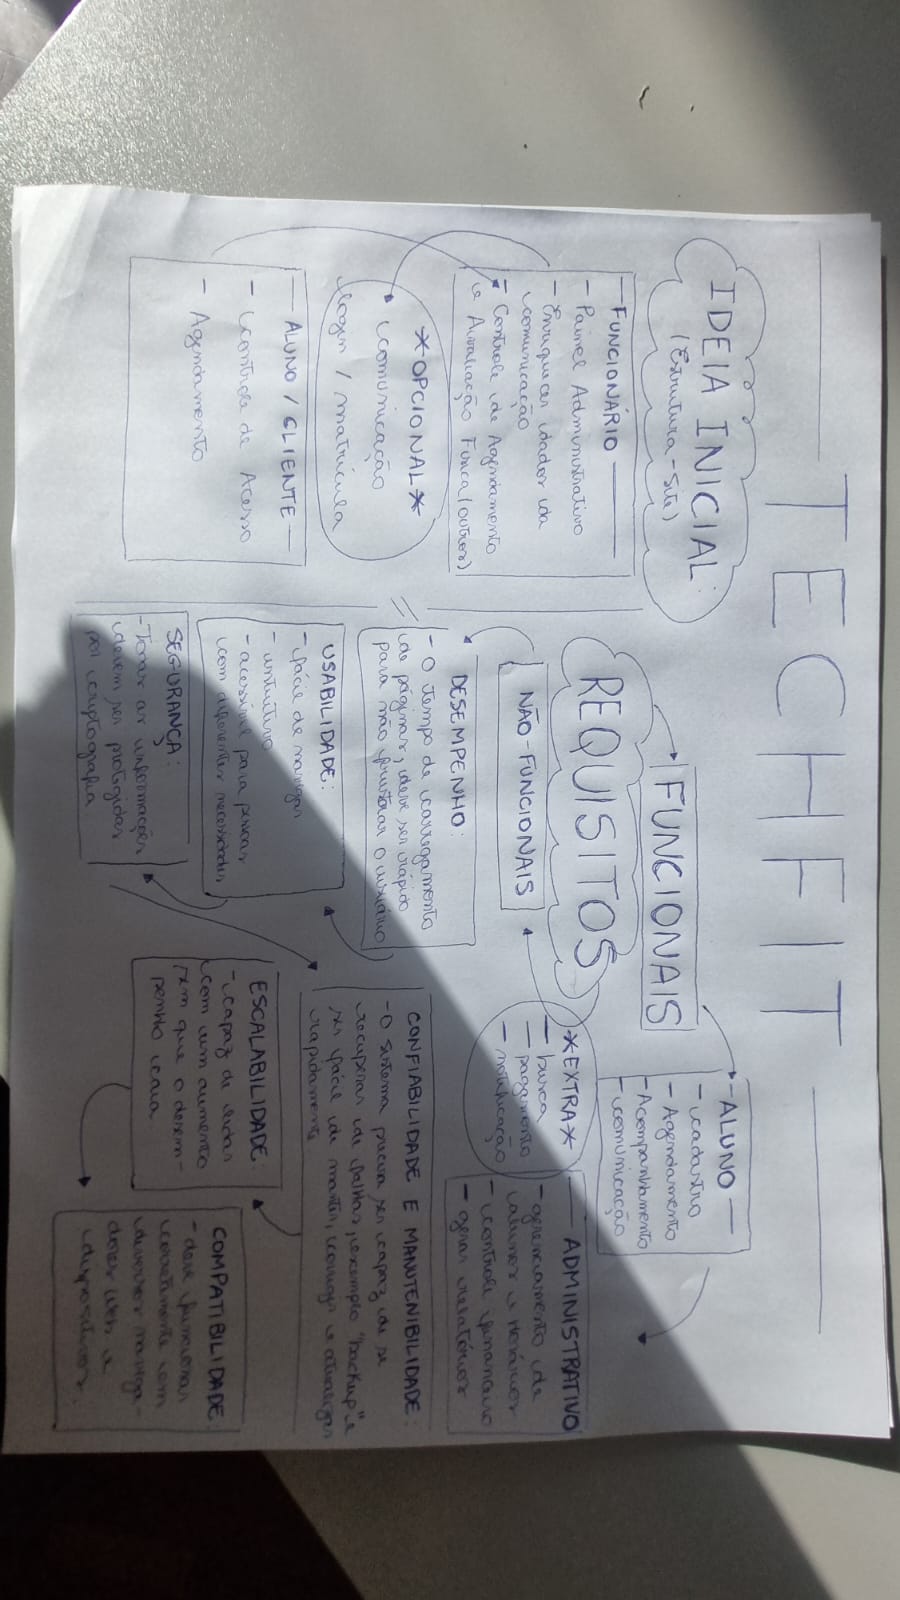 TECHFIT
IDEIA INICIAL:
(Estrutura-Site)
FUNCIONÁRIO
- Painel Administrativo
- Enriquecedor da
comunicação
- Controle de Agendamento
(e Avaliação Física/outros)
*OPCIONAL*
comunicação
login / matrícula
ALUNO / CLIENTE
- controle de Acesso
- Agendamento
REQUISITOS
FUNCIONAIS
ALUNO
- cadastro
- Agendamento
- Acompanhamento
- comunicação
ADMINISTRATIVO
- gerenciamento de
alunos e horários
- controle financeiro
- gerar relatórios
*EXTRA*
- busca
- pagamento
- notificação
NÃO-FUNCIONAIS
DESEMPENHO:
- O tempo de carregamento
de páginas, deve ser rápido
para não frustrar o usuário
USABILIDADE:
- fácil de navegar
- intuitivo
- acessível para pessoas
com diferentes necessidades
SEGURANÇA:
- Todas as informações
devem ser protegidas
por criptografia
CONFIABILIDADE E MANUTENIBILIDADE:
- O sistema precisa ser capaz de se
recuperar de falhas, exemplo "backup" e
ser fácil de manter, corrigir e atualizar
rapidamente
ESCALABILIDADE:
- capaz de lidar
com um aumento
sem que o desem-
penho caia
COMPATIBILIDADE:
- deve funcionar
corretamente com
diversos navega-
dores web e
dispositivos.